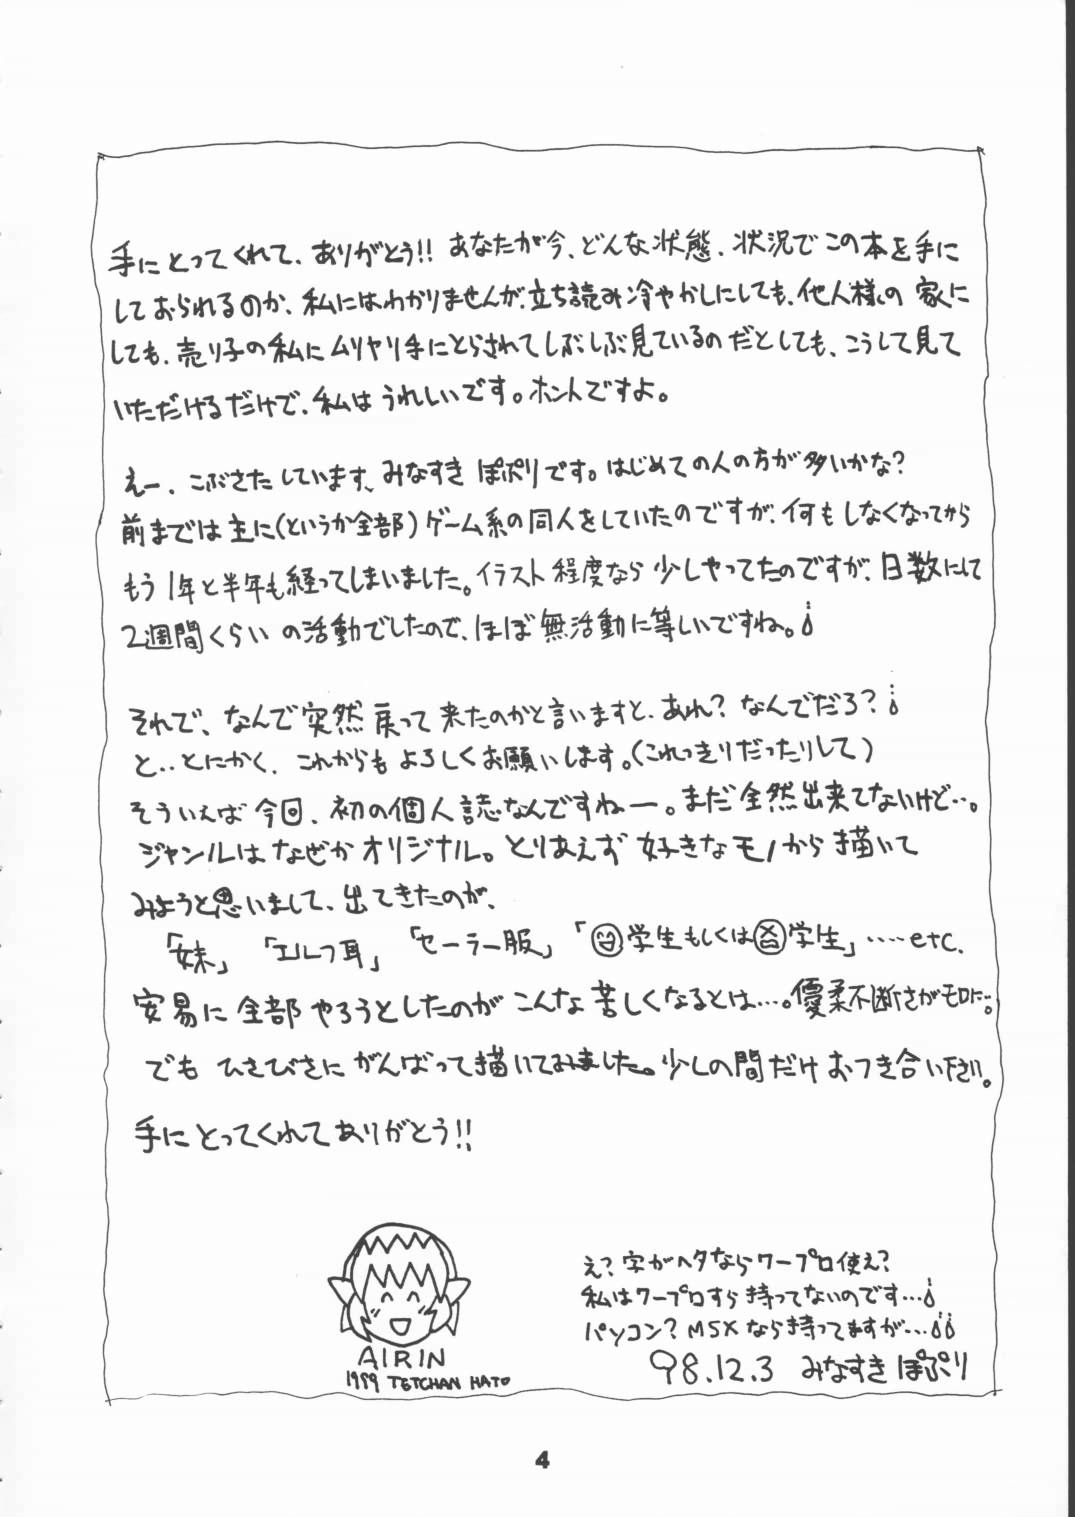 手にとってくれて、ありがとう!! あなたが今、どんな状態、状況でこの本を手に
しておられるのか、私にはわかりませんが、立ち読み冷やかしにしても、他人様の家に
しても、売り子の私にムリヤリ手にとらされてしぶしぶ見ているのだとしても、こうして見て
いただけるだけで、私はうれしいです。ホントですよ。
えー、こぶさたしています、みなすきぽぷりです。はじめての人の方が多いかな?
前までは主に(というか全部)ゲーム系の同人をしていたのですが、何もしなくなってから
もう1年と半年も経ってしまいました。イラスト程度なら少しやってたのですが、日数にして
2週間くらいの活動でしたので、ほぼ無活動に等しいですね。
それで、なんで突然戻って来たのかと言いますと、あれ?なんでだろ?
と‥とにかく、これからもよろしくお願いします。(これっきりだったりして)
そういえば今回、初の個人誌なんですねー。まだ全然出来てないけど…。
ジャンルはなぜかオリジナル。とりあえず好きなモノから描いて
みようと思いまして、出てきたのが、
「妹」「エルフ耳」「セーラー服」「学生もしくは学生」‥‥etc.
安易に全部やろうとしたのがこんな苦しくなるとは…。優柔不断さがモロに。
でもひさびさにがんばって描いてみました。少しの間だけおつき合い下さい。
手にとってくれてありがとう!!
AIRIN
1999 TETCHAN HATO
え?字がヘタならワープロ使え?
私はワープロすら持ってないのです…
パソコン?MSXなら持ってますが…
98.12.3 みなすきぽぷり
4